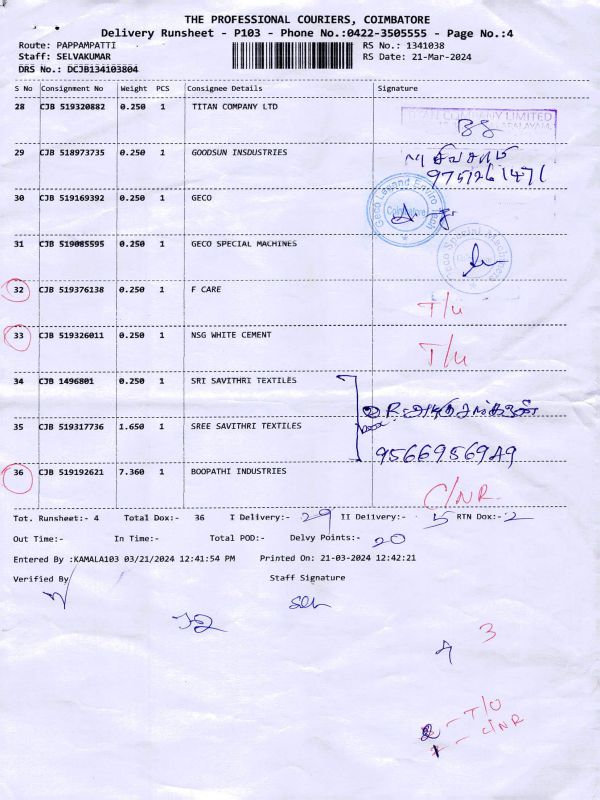 THE PROFESSIONAL COURIERS, COIMBATORE
Delivery Runsheet - P103 - Phone No.:0422-3505555 - Page No.:4
Route: PAPPAMPATTI RS No.: 1341038
Staff: SELVAKUMAR RS Date: 21-Mar-2024
DRS No.: DCJB134103804
S No Consignment No Weight PCS Consignee Details Signature
28 CJB 519320882 0.250 1 TITAN COMPANY LTD
TITAN COMPANY LIMITED
29 CJB 518973735 0.250 1 GOODSUN INSDUSTRIES
9751261471
30 CJB 519169392 0.250 1 GECO
Geco Legand Enviro Tech
Coimbatore
31 CJB 519085595 0.250 1 GECO SPECIAL MACHINES
32 CJB 519376138 0.250 1 F CARE T/U
33 CJB 519326011 0.250 1 NSG WHITE CEMENT T/U
34 CJB 1496801 0.250 1 SRI SAVITHRI TEXTILES
35 CJB 519317736 1.650 1 SREE SAVITHRI TEXTILES
9566956949
36 CJB 519192621 7.360 1 BOOPATHI INDUSTRIES C/NR
Tot. Runsheet:- 4 Total Dox:- 36 I Delivery:- 29 II Delivery:- 5 RTN Dox:- 2
Out Time:- In Time:- Total POD:- Delvy Points:- 20
Entered By :KAMALA103 03/21/2024 12:41:54 PM Printed On: 21-03-2024 12:42:21
Verified By Staff Signature
3
2 - T/U
1 - C/NR